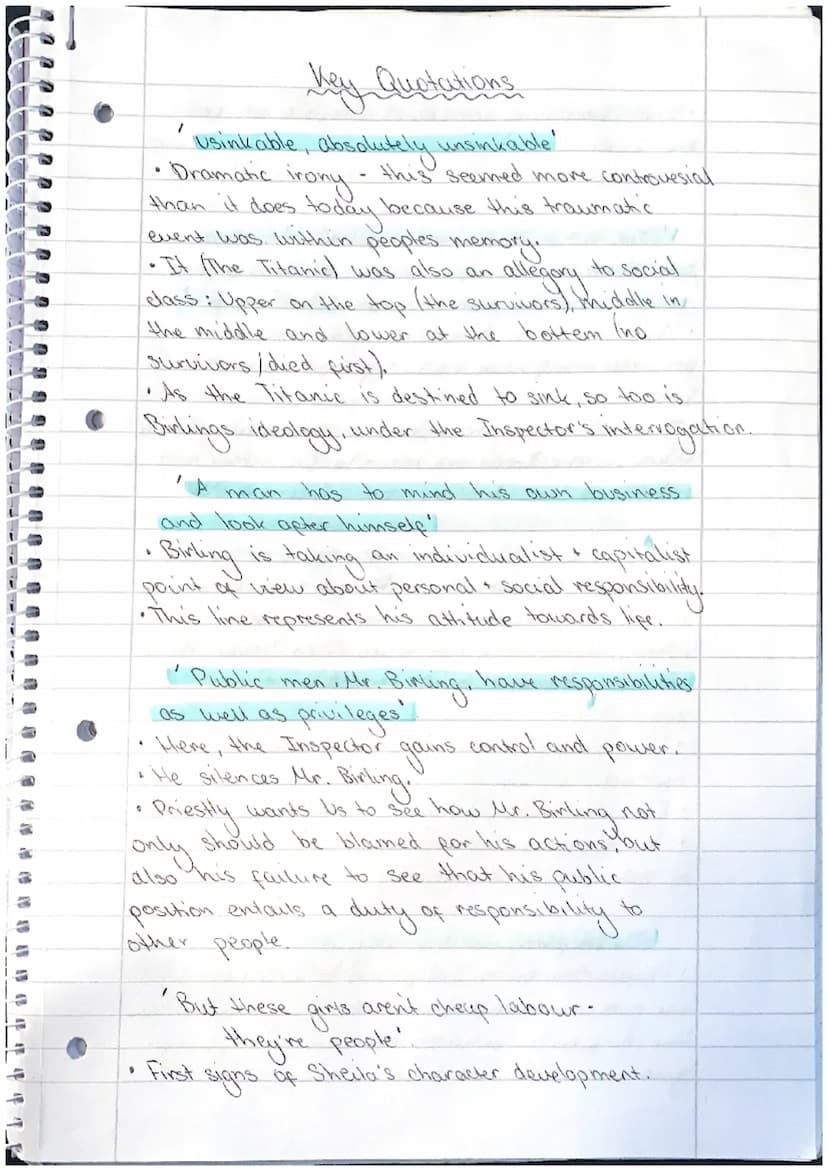 Key Quotations
'usinkable, absolutely unsinkable'
• Dramatic irony - this seemed more controvesial
than it does today because this traumatic
event was within peoples memory.
• It (The Titanic) was also an allegory to social
class: Upper on the top (the survivors), middle in
the middle and lower at the bottem (no
survivors/died first).
• As the Titanic is destined to sink, so too is
Birlings ideology, under the Inspector's interrogation.
'A man has to mind his own business
and look after himself'
• Birling is taking an individualist + capitalist
point of view about personal + social responsibility.
• This line represents his attitude towards life.
'Public men, Mr. Birling, have responsibilities
as well as privileges'
• Here, the Inspector gains control and power.
• He silences Mr. Birling.
• Priestly wants us to see how Mr. Birling not
only should be blamed for his actions, but
also his failure to see that his public
position entails a duty of responsibility to
other people.
'But these girls aren't cheap labour -
they're people'.
• First signs of Sheila's character development.